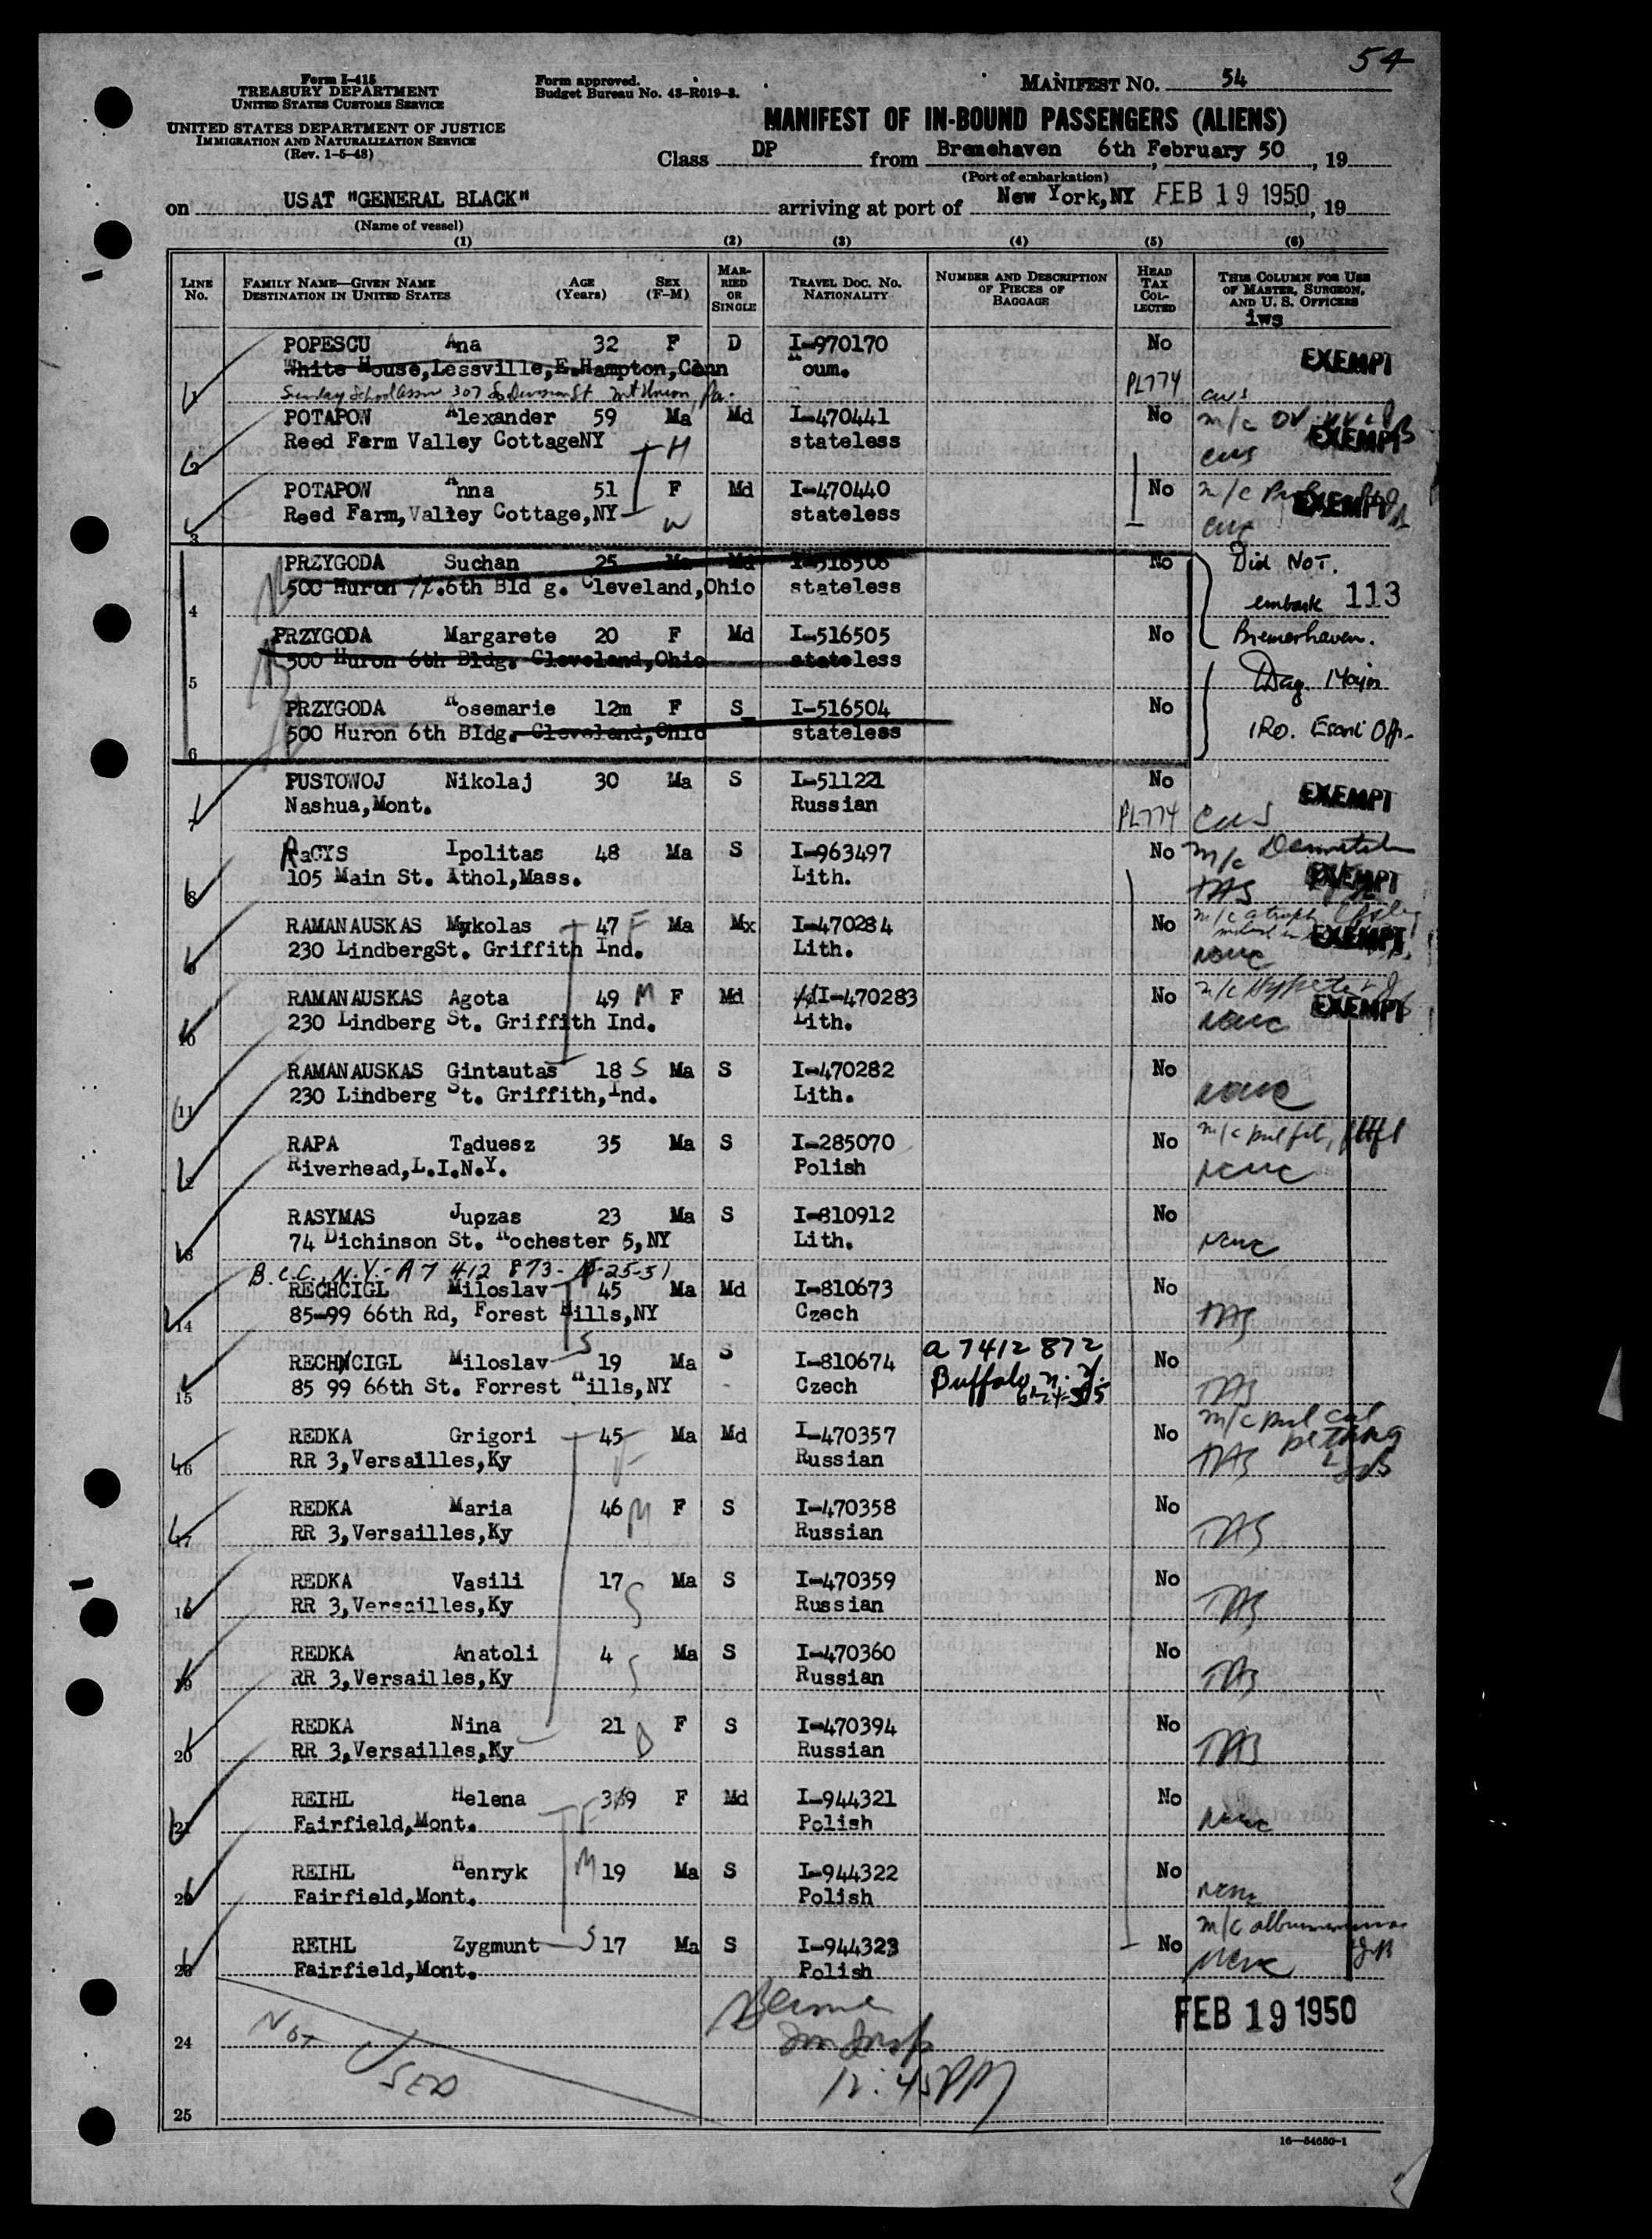 54
Form I-415
TREASURY DEPARTMENT
UNITED STATES CUSTOMS SERVICE
UNITED STATES DEPARTMENT OF JUSTICE
IMMIGRATION AND NATURALIZATION SERVICE
(Rev. 1-5-48)
Form approved.
Budget Bureau No. 43-R019-3.
MANIFEST NO. 54
MANIFEST OF IN-BOUND PASSENGERS (ALIENS)
Class DP from Bremehaven 6th February 50, 19
(Port of embarkation)
on USAT "GENERAL BLACK" arriving at port of New York,NY FEB 19 1950, 19
(Name of vessel)
(1) (2) (3) (4) (5) (6)
LINE No. FAMILY NAME—GIVEN NAME DESTINATION IN UNITED STATES AGE (Years) SEX (F-M) MARRIED OR SINGLE TRAVEL DOC. NO. NATIONALITY NUMBER AND DESCRIPTION OF PIECES OF BAGGAGE HEAD TAX COLLECTED THIS COLUMN FOR USE OF MASTER, SURGEON, AND U. S. OFFICERS
iws
POPESCU Ana 32 F D I-970170 No EXEMPT
White House,Lessville,E.Hampton,Conn oum.
1 Sunday School Assn 307 So Division St Mt Union, Pa. PL774 cws
POTAPOW Alexander 59 Ma Md I-470441 No m/c
Reed Farm Valley CottageNY stateless EXEMPT
2 H cws
POTAPOW Anna 51 F Md I-470440 No m/c EXEMPT
Reed Farm,Valley Cottage,NY W stateless
3
PRZYGODA Suchan 25 Ma Md I-516506 No Did Not
500 Huron 6th Bld g. Cleveland,Ohio stateless
4 embark 113
PRZYGODA Margarete 20 F Md I-516505 No Bremerhaven.
500 Huron 6th Bldg. Cleveland,Ohio stateless
5
PRZYGODA Rosemarie 12m F S I-516504 No
500 Huron 6th Bldg. Cleveland,Ohio stateless IRO. Escort Off.
6
PUSTOWOJ Nikolaj 30 Ma S I-51122l No EXEMPT
Nashua,Mont. Russian
7 PL774 cws
RaCYS Ipolitas 48 Ma S I-963497 No m/c
105 Main St. Athol,Mass. Lith. EXEMPT
8 TAS
RAMANAUSKAS Mykolas 47 F Ma Mx I-470284 No m/c
230 LindbergSt. Griffith Ind. Lith. EXEMPT
9
RAMANAUSKAS Agota 49 M F Md I-470283 No m/c
230 Lindberg St. Griffith Ind. Lith. EXEMPT
10
RAMANAUSKAS Gintautas 18 S Ma S I-470282 No
230 Lindberg St. Griffith,Ind. Lith.
11
RAPA Taduesz 35 Ma S I-285070 No m/c
Riverhead,L.I.N.Y. Polish
12
RASYMAS Jupzas 23 Ma S I-810912 No
74 Dichinson St. Rochester 5,NY Lith.
13
B.C.C., N.Y.- A7 412 873-
RECHCIGL Miloslav 45 Ma Md I-810673 No
85-99 66th Rd, Forest Hills,NY Czech
14 TAS
RECHCIGL Miloslav S 19 Ma S I-810674 a 7412 872 No
85 99 66th St. Forrest Hills,NY Czech Buffalo n.y.
15 TAS
REDKA Grigori 45 F Ma Md I-470357 No m/c
RR 3,Versailles,Ky Russian
16 TAS
REDKA Maria 46 M F S I-470358 No
RR 3,Versailles,Ky Russian
17 TAS
REDKA Vasili 17 S Ma S I-470359 No
RR 3,Versailles,Ky Russian
18 TAS
REDKA Anatoli 4 S Ma S I-470360 No
RR 3,Versailles,Ky Russian
19 TAS
REDKA Nina 21 D F S I-470394 No
RR 3,Versailles,Ky Russian
20 TAS
REIHL Helena 39 F Md I-944321 No
Fairfield,Mont. Polish
21
REIHL Henryk M 19 Ma S I-944322 No
Fairfield,Mont. Polish
22
REIHL Zygmunt S 17 Ma S I-944323 No m/c
Fairfield,Mont. Polish
23
FEB 19 1950
24 NOT USED
12:45 PM
25
16—54630-1